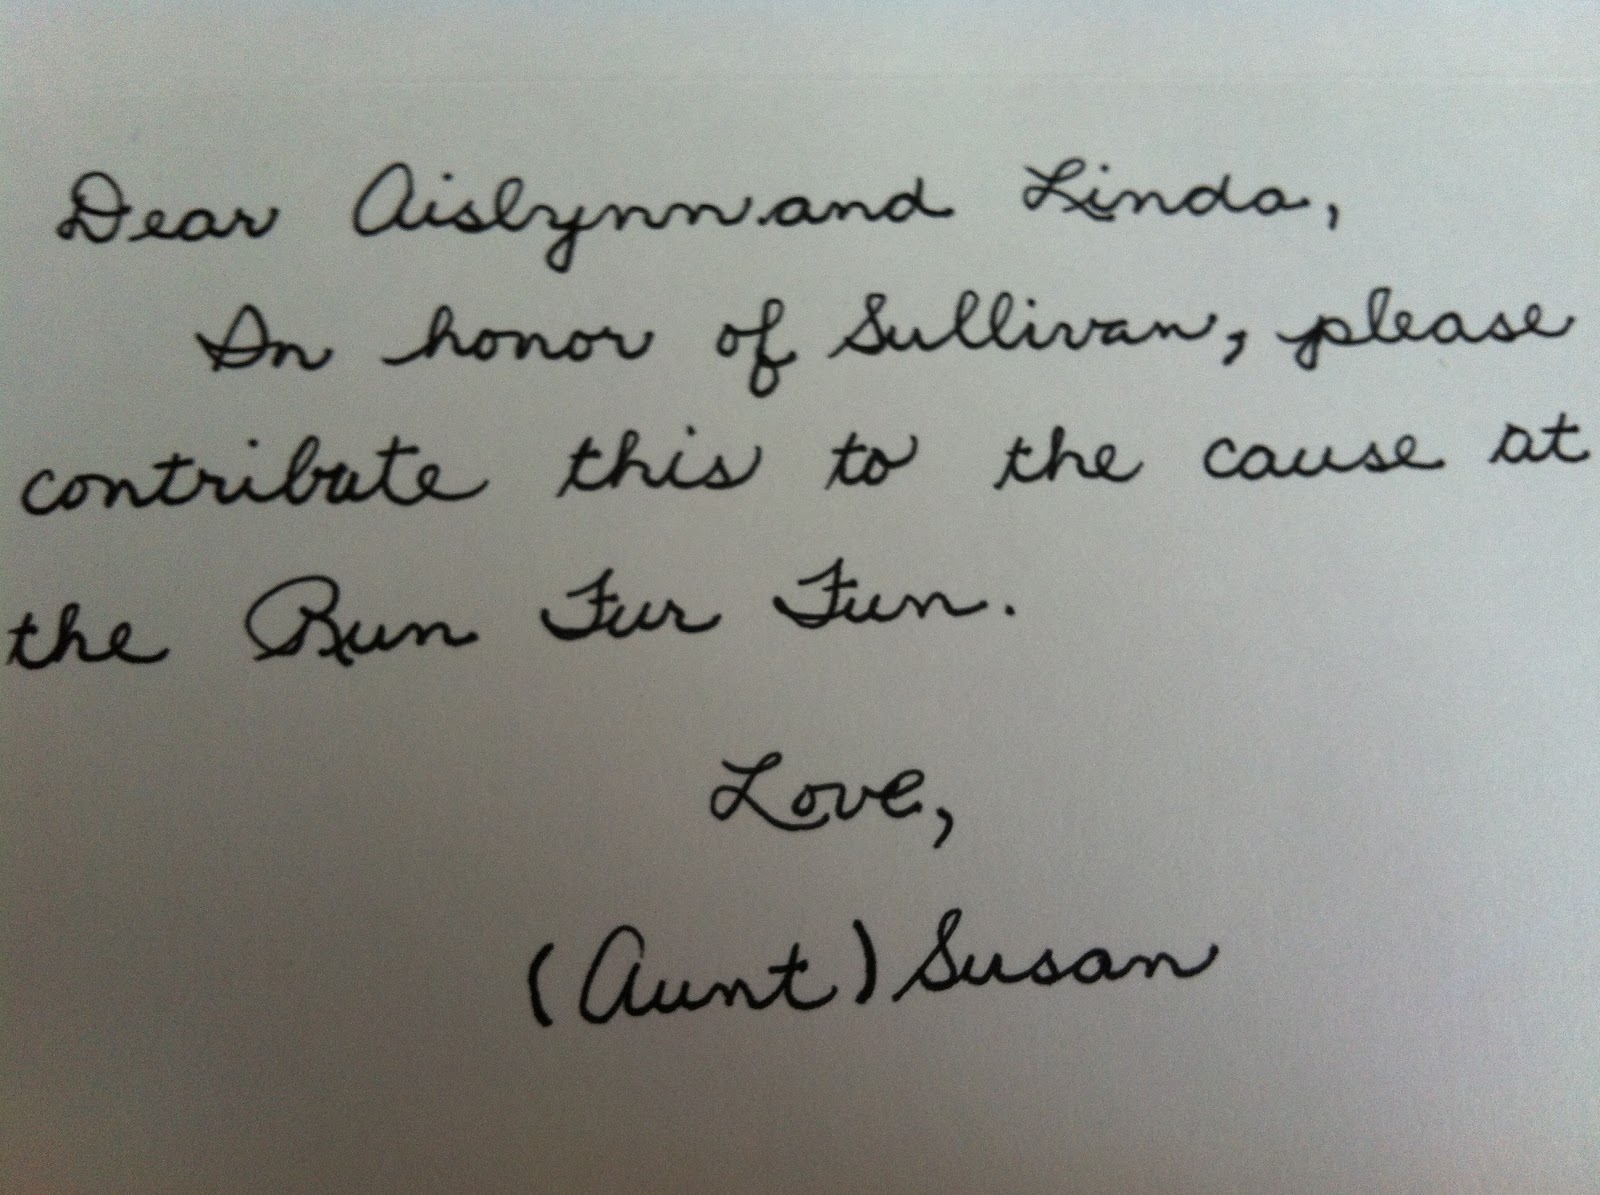 Dear Aislynn and Linda,
In honor of Sullivan, please
contribute this to the cause at
the Run Fur Fun.
Love,
(Aunt) Susan